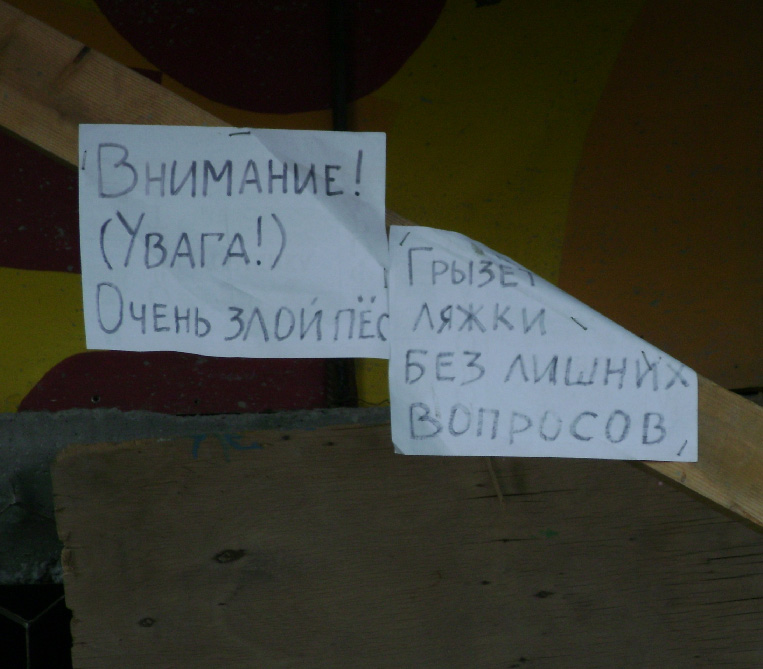 Внимание!
(Увага!)
Очень злой пёс
Грызет
ляжки
без лишних
вопросов